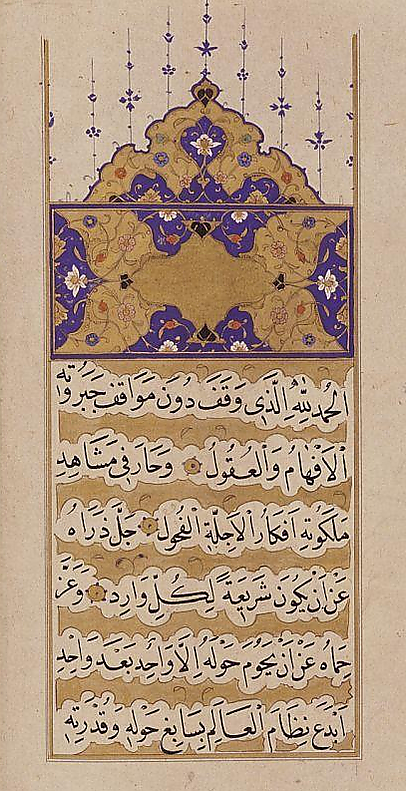 الحمد لله الذي وقف دون مواقف جبروته
الأفهام والعقول وحار في مشاهد
ملكوته أفكار الأجلة الفحول جل ذراه
عن أن يكون شريعة لكل وارد وعز
حماه عن أن يحوم حوله إلا واحد بعد واحد
أبدع نظام العالم بسابغ حوله وقدرته